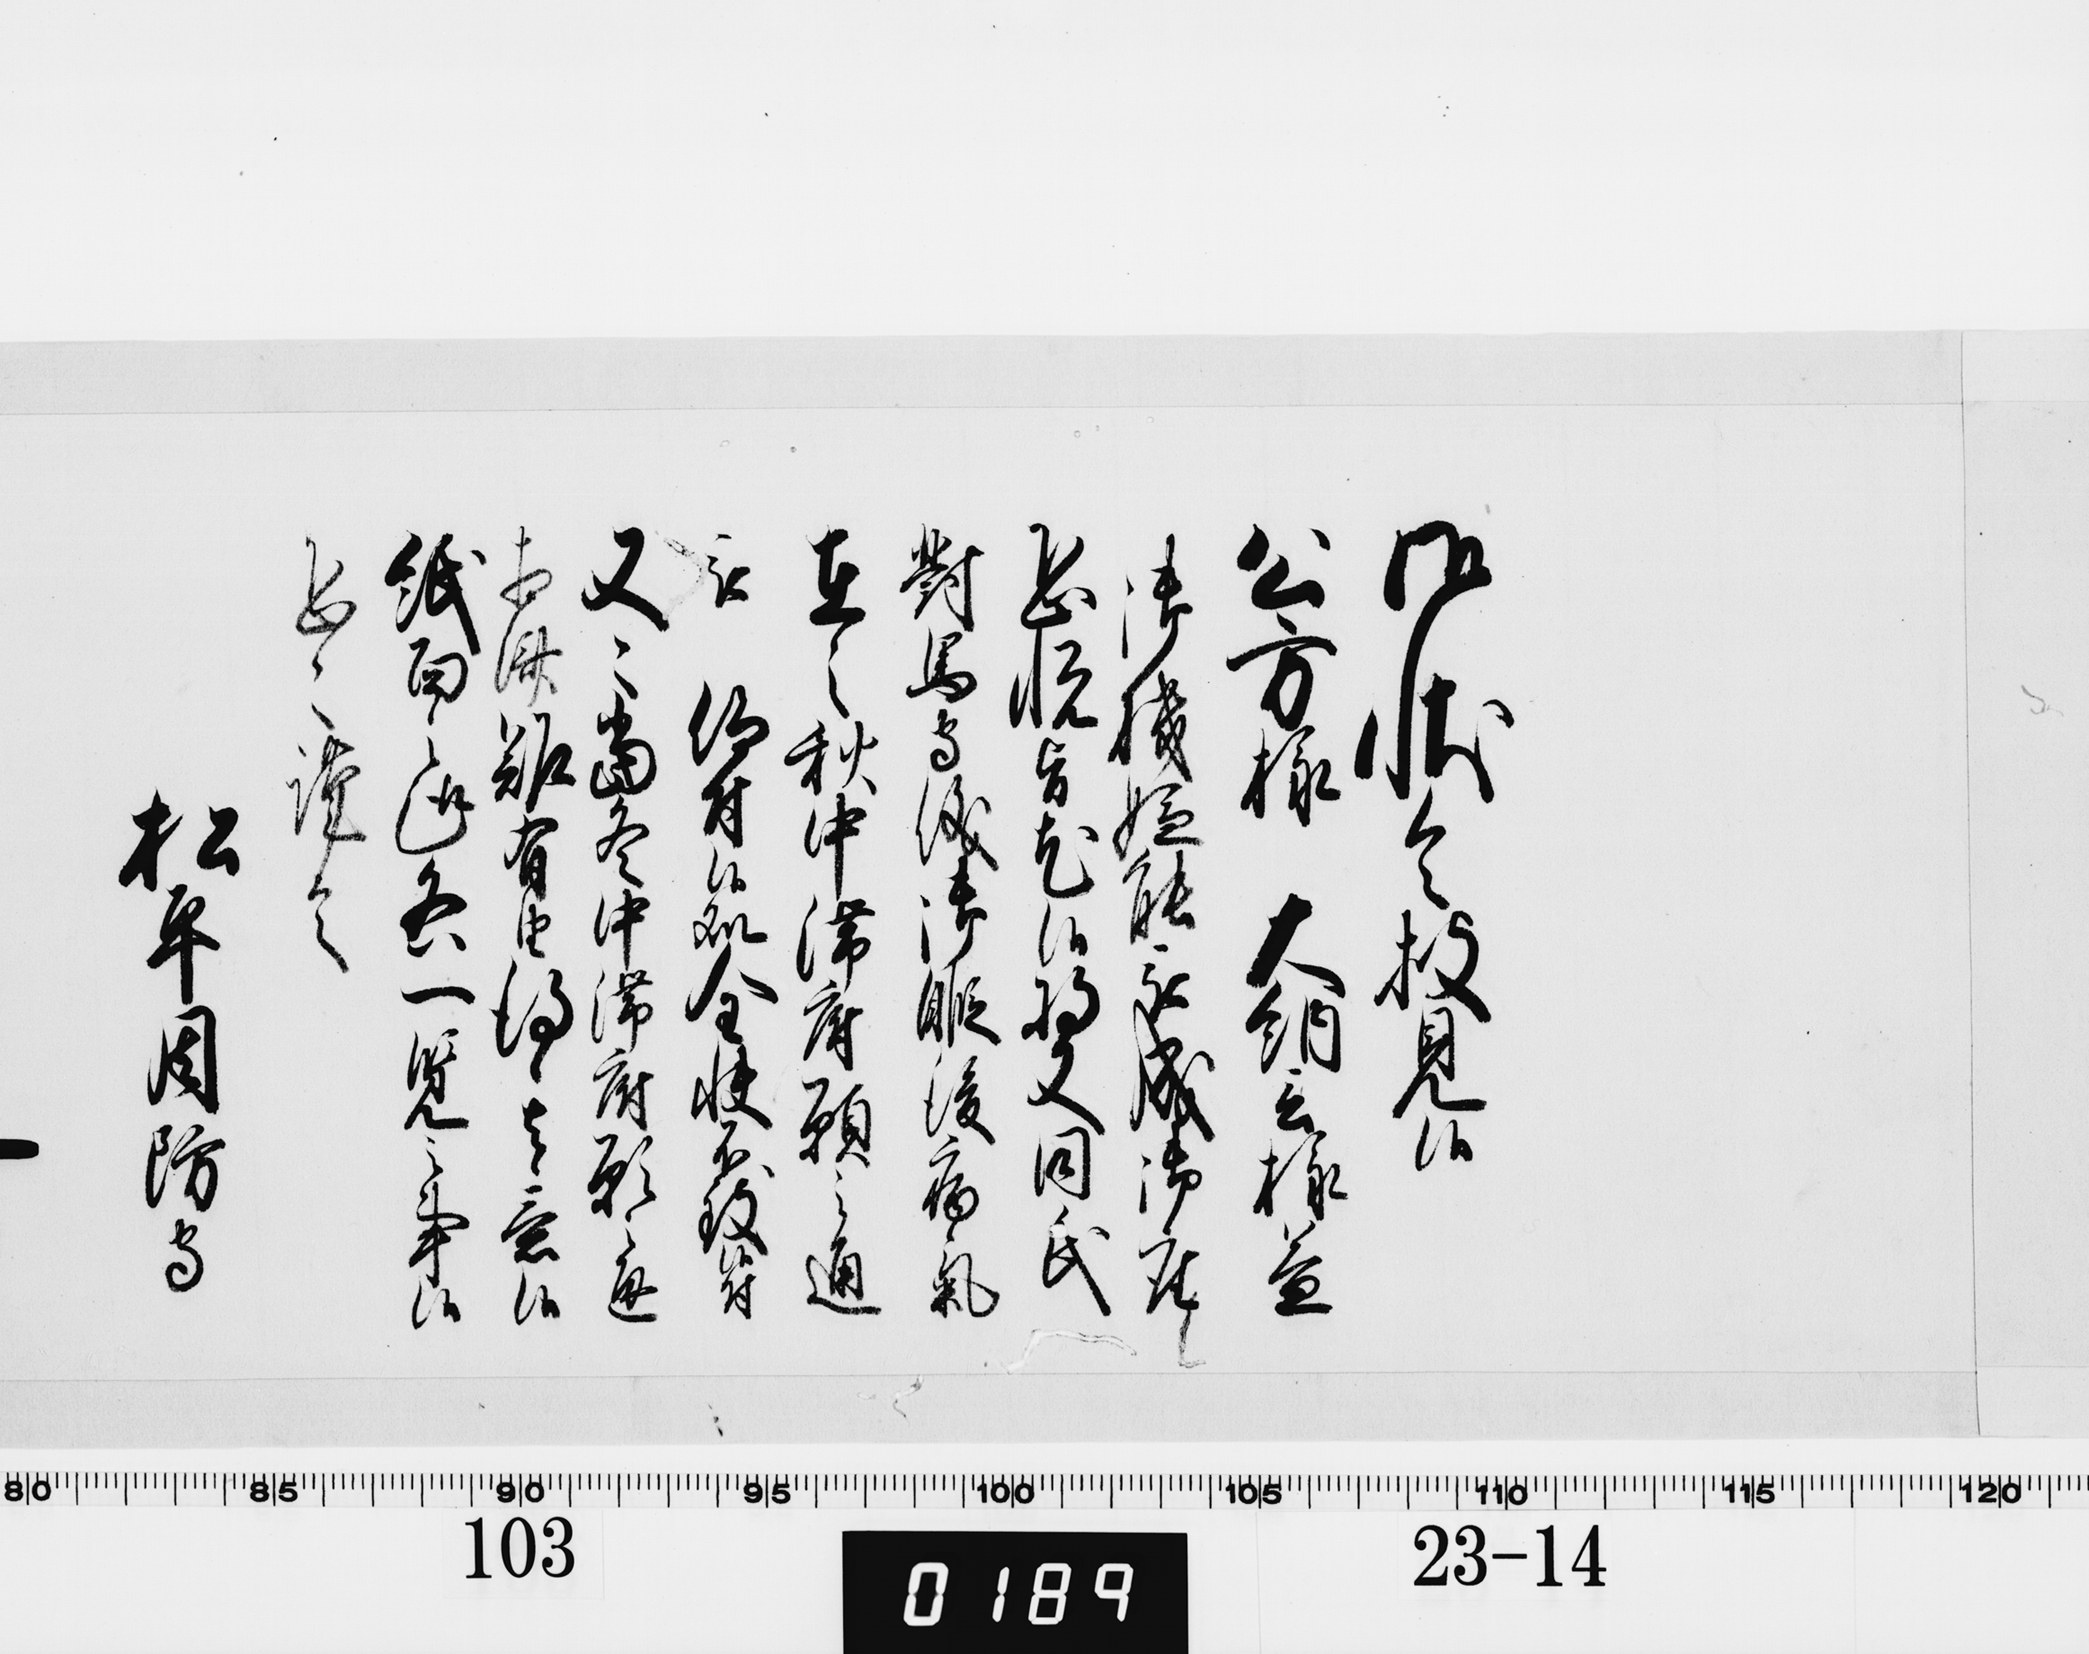 御状令披見候
公方様 大納言様益
御機嫌能被成御座
恐悦旨尤候将又同氏
對馬守儀御暇後病氣
在之秋中滞府願之通
被 仰付候處全快不致付
又々當冬中滞府願之通
相済難有由得其意候
紙面之趣各一覧之事候
恐々謹言
松平周防守
80 85 90 95 100 105 110 115 120
103
0189
23-14